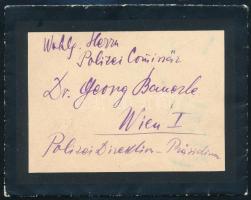 Wohlg. Herrn
Polizei Comissär
Dr. Georg
Wien I
Polizei Direktion - Präsidium